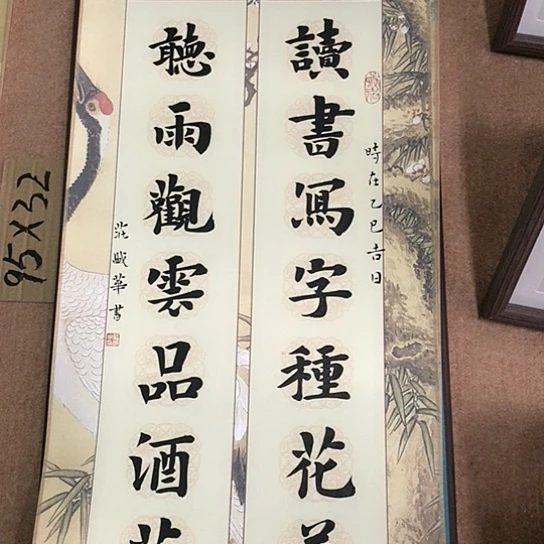 讀書寫字種花
時在乙巳吉日
聽雨觀雲品酒
華書
95X32